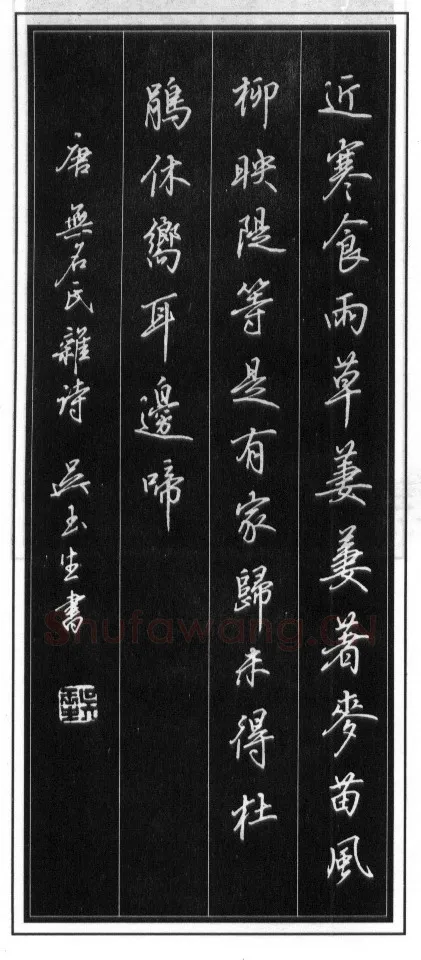 近寒食雨草萋萋著麥苗風
柳映隄等是有家歸未得杜
鵑休嚮耳邊啼
唐無名氏雜诗 吳玉生書
Shufawang.CN